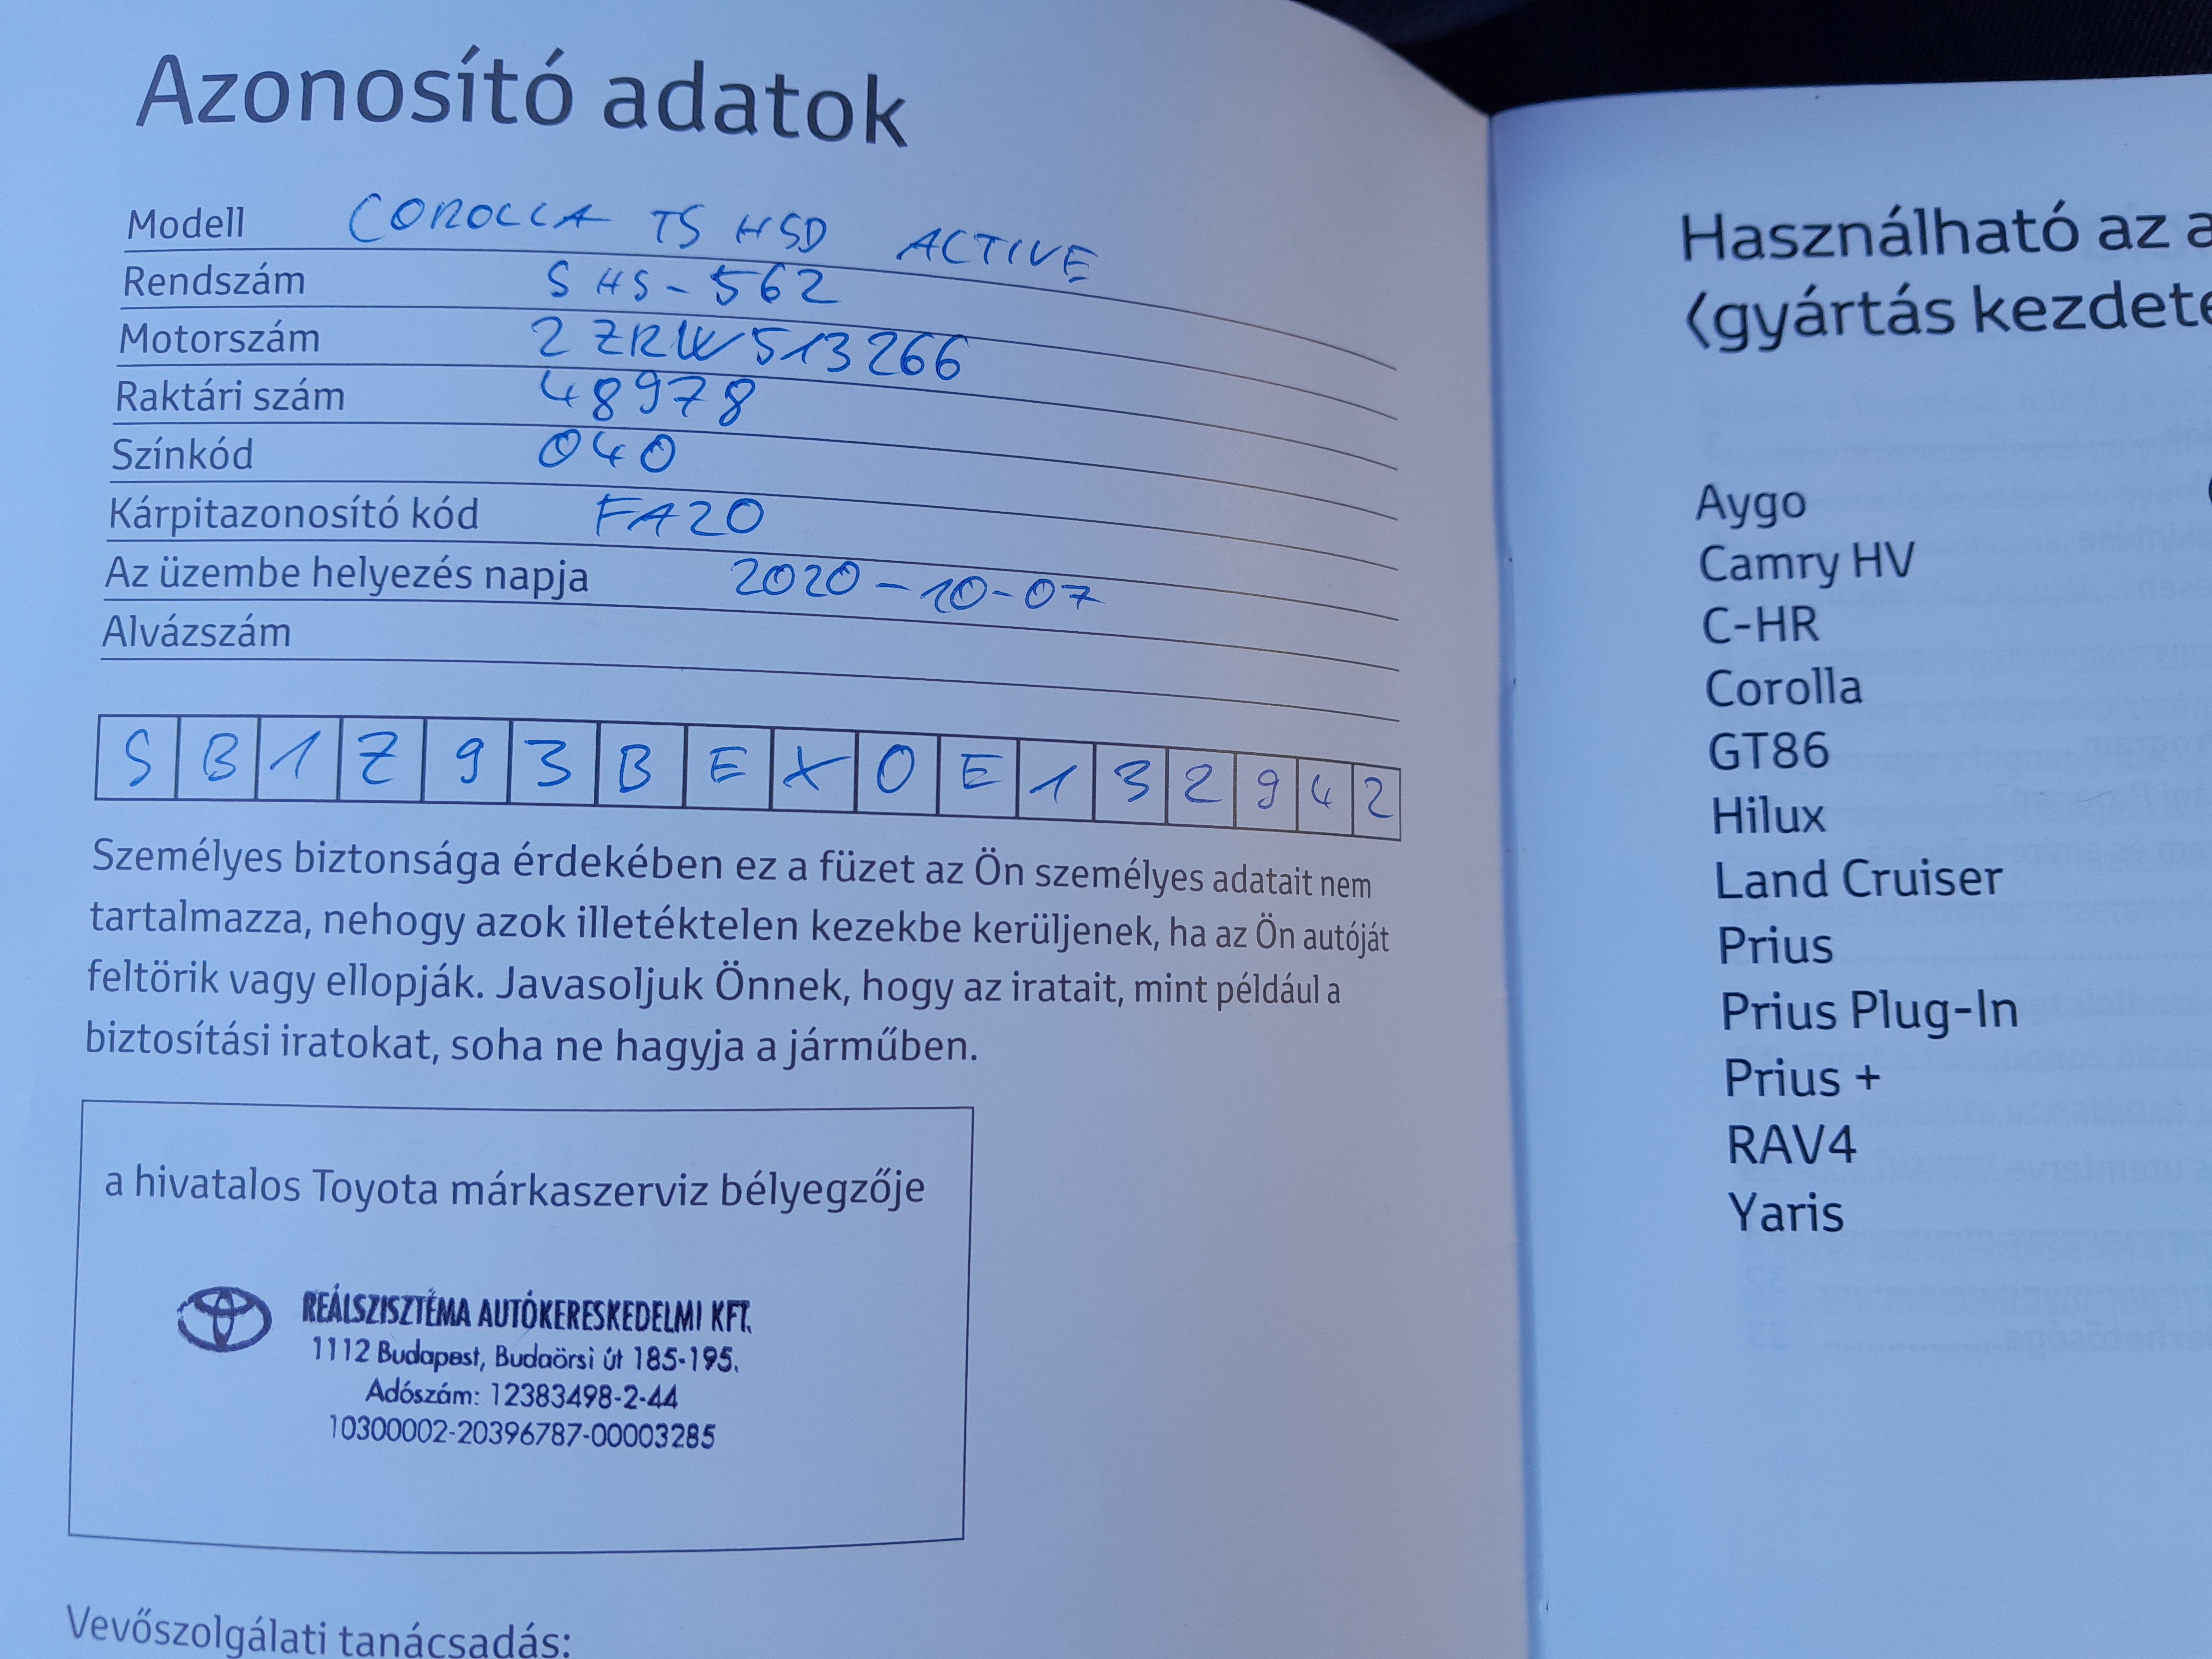 Azonosító adatok
Modell COROLLA TS HSD ACTIVE
Rendszám SHS-562
Motorszám 2ZRW513266
Raktári szám 48978
Színkód 040
Kárpitazonosító kód FA20
Az üzembe helyezés napja 2020-10-07
Alvázszám
SB1Z93BEX0E132942
Személyes biztonsága érdekében ez a füzet az Ön személyes adatait nem
tartalmazza, nehogy azok illetéktelen kezekbe kerüljenek, ha az Ön autóját
feltörik vagy ellopják. Javasoljuk Önnek, hogy az iratait, mint például a
biztosítási iratokat, soha ne hagyja a járműben.
a hivatalos Toyota márkaszerviz bélyegzője
REÁLSZISZTÉMA AUTÓKERESKEDELMI KFT.
1112 Budapest, Budaörsi út 185-195.
Adószám: 12383498-2-44
10300002-20396787-00003285
Vevőszolgálati tanácsadás:
Használható az a
(gyártás kezdete
Aygo
Camry HV
C-HR
Corolla
GT86
Hilux
Land Cruiser
Prius
Prius Plug-In
Prius +
RAV4
Yaris